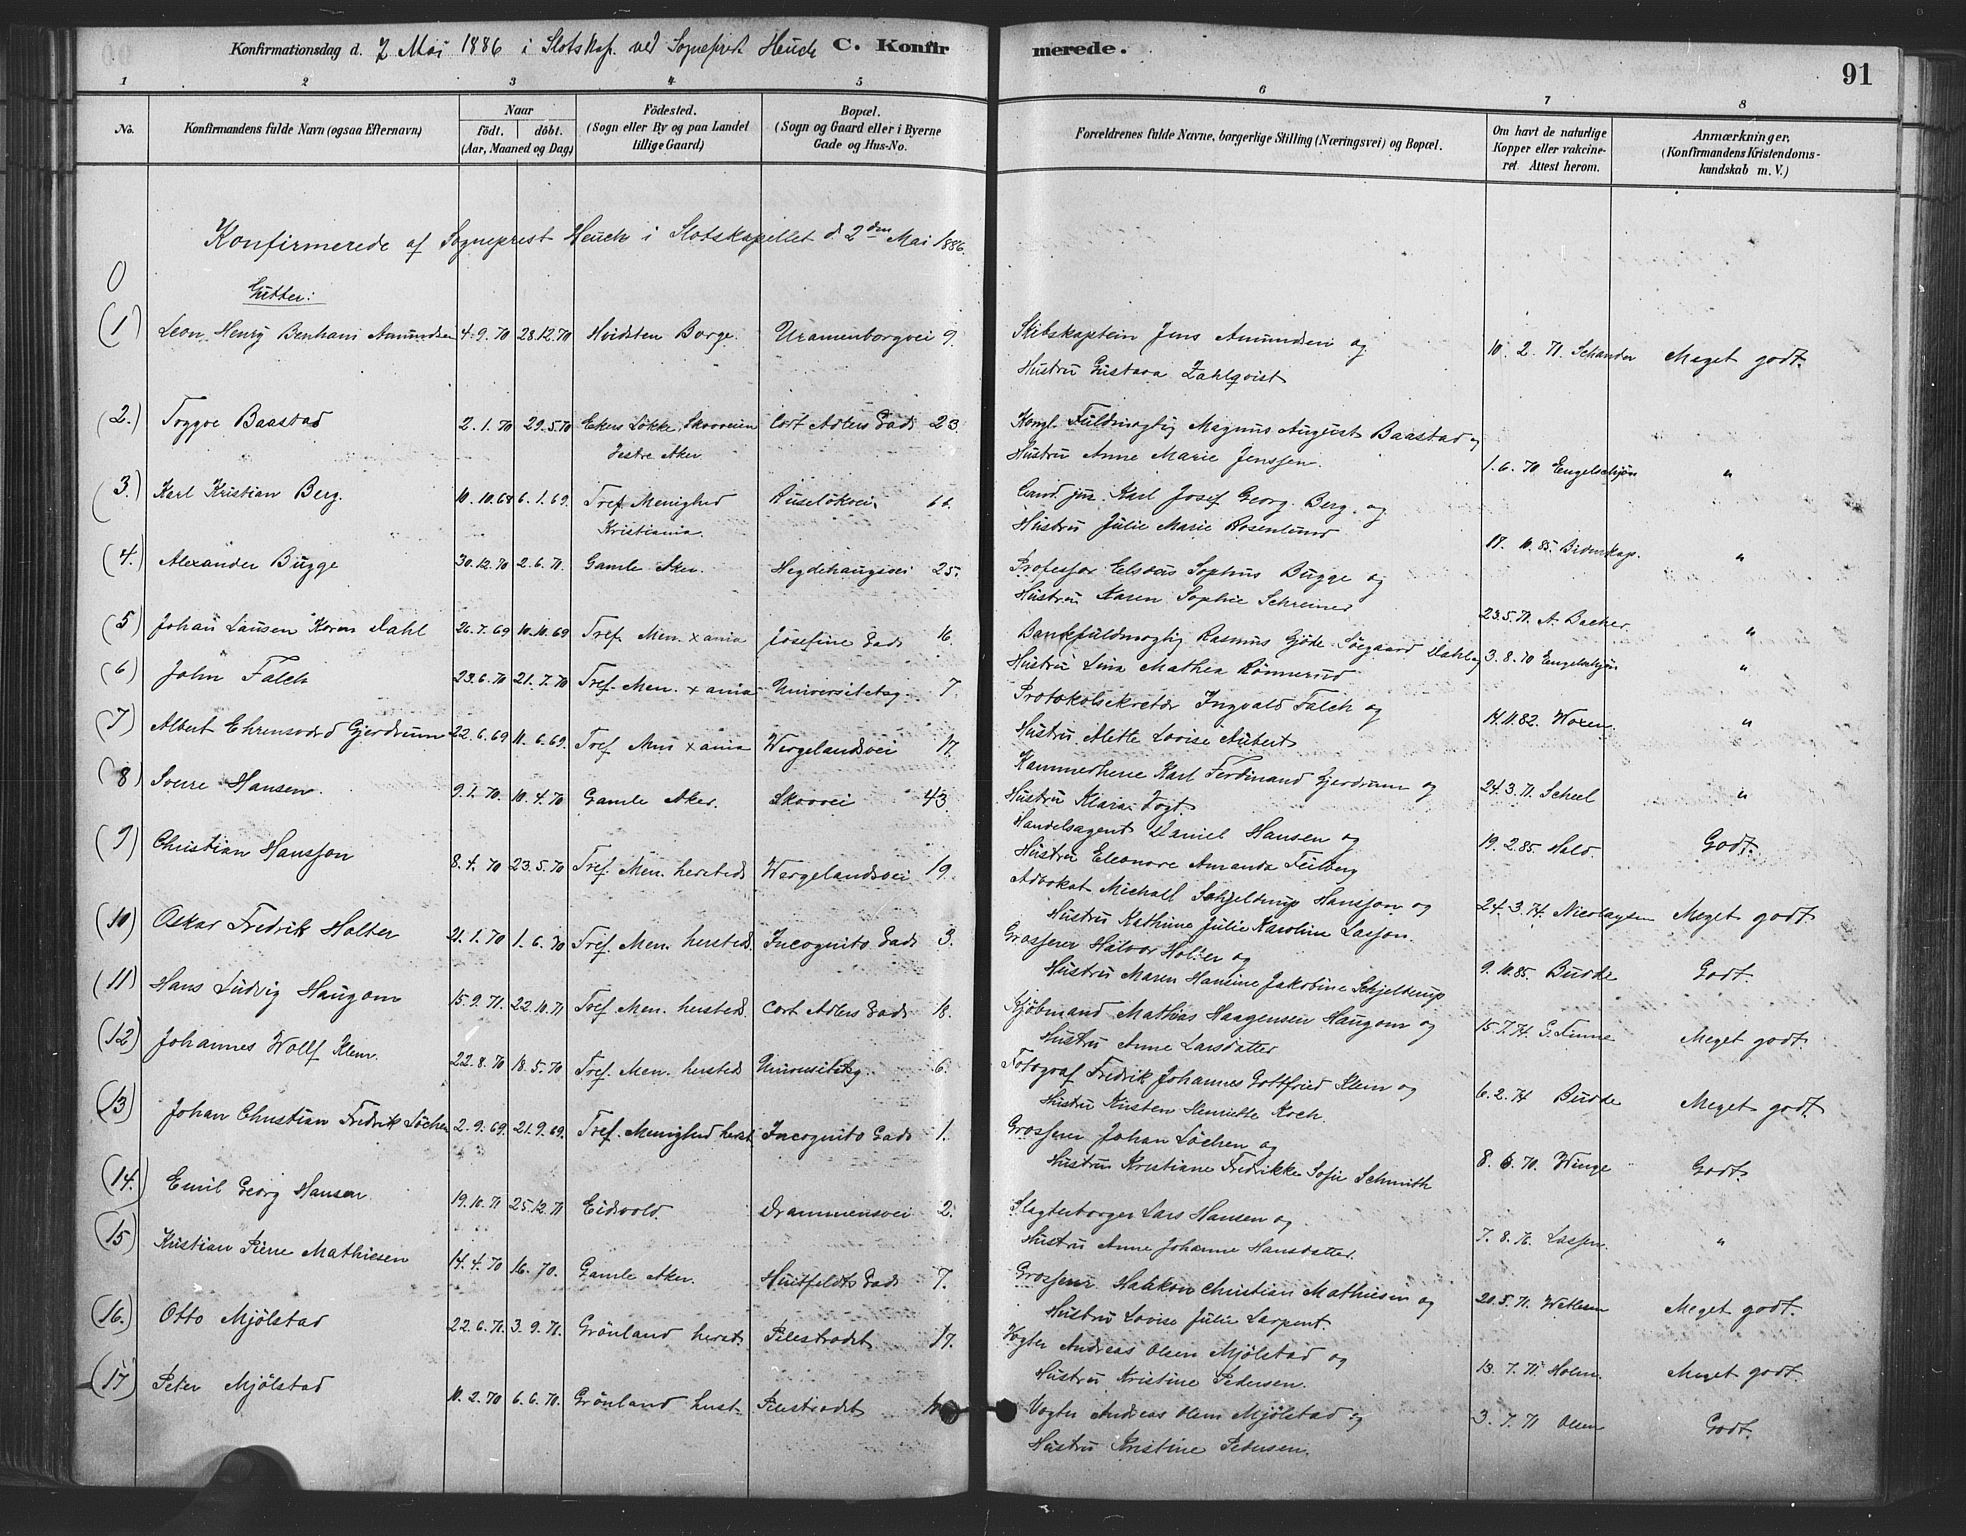 Konfirmationsdag d. 2 Mai 1886 i Slotskap. ved Sogneprest Heuch C. Konfirmerede. 91
1 2 3 4 5 6 7 8
No. Konfirmandens fulde Navn (ogsaa Efternavn) Naar födt. döbt. (Aar, Maaned og Dag) Födested. (Sogn eller By og paa Landet lillige Gaard) Bopæl. (Sogn og Gaard eller i Byerne Gade og Hus-No. Forældrenes fulde Navne, borgerlige Stilling (Næringsvei) og Bopæl. Om havt de naturlige Kopper eller vakcineret. Attest herom. Anmærkninger, (Konfirmandens Kristendomskundskab m. V.)
Konfirmerede af Sogneprest Heuch i Slotskapellet d. 2den Mai 1886.
Gutter:
(1) Leon Henry Benham Amundsen 4.9.70 28.12.70 Hvidsten Borge. Uranienborgvei 9. Skibskaptein Jens Amundsen og 10.2.71. Schander Meget godt.
Hustru Gustava Zahlqvist
(2.) Trygve Baastad 2.1.70 29.5.70 Ekers Løkke, Skovveien Cort Adlers Gade 23. Kongl. Fuldmægtig Magnus August Baastad og
Vestre Aker Hustru Anne Marie Jenssen. 1.6.70 Engelschjøn "
(3.) Karl Kristian Berg. 10.10.68 6.1.69. Tref. Menighed Ruseløkvei 66. Cand. jur. Karl Josef Georg Berg og
Kristiania. Hustru Julie Marie Rosenlund 17.10.85. Bidenkap. "
(4.) Alexander Bugge 30.12.70 2.6.71. Gamle Aker. Hegdehaugsvei 25. Professor Elseus Sophus Bugge og
Hustru Karen Sophie Schreiner 23.5.71. A. Backer. "
(5) Johan Lausen Koren Dahl 26.7.69 10.10.69 Tref. Men. Xania Josefine Gade 16. Bankfuldmægtig Rasmus Gjøde Søegaard Dahl og 3.8.70 Engelschjøn "
Hustru Lina Mathea Rønnerud
(6) John Falch 23.6.70 21.7.70 Tref. Men. Xania Universitetsg. 7. Protokolsekretær Ingvald Falch og 14.11.82. Woxen "
Hustru Alette Lovise Aubert
(7) Albert Ehrensvärd Gjerdrum 22.6.69 11.6.69. Tref. Men Xania Wergelandsvei 17. Kammerherre Karl Ferdinand Gjerdrum og 24.3.71. Scheel "
Hustru Klara Vogt
(8) Sverre Hansen. 9.1.70. 10.4.70 Gamle Aker. Skovvei 43. Handelsagent Daniel Hansen og 19.2.85. Hald. Godt.
Hustru Eleonore Amanda Feilberg
(9) Christian Hansson 8.4.70 23.5.70 Tref. Men. hersteds Wergelandsvei 19. Advokat Michael Schjelderup Hansson og 24.3.74. Nicolaysen Meget godt
Hustru Kathrine Julie Karoline Lasson.
(10) Oskar Fredrik Holter 21.1.70 1.6.70 Tref. Men. hersteds. Incognito Gade 3. Grosserer Halvor Holter og 9.10.85. Budde Godt.
Hustru Maren Hansine Jakobine Schjelderup
(11) Hans Ludvig Haugom 15.9.71. 22.10.71 Tref. Men. hersteds. Cort Adlers Gade 18. Kjøbmand Mathias Haagensen Haugom og 15.7.74. G. Finne Meget godt.
Hustru Anne Larsdatter
(12) Johannes Wolff Klem. 22.8.70 18.5.70 Tref. Men. hersteds Universitetsg. 6. Fotograf Fredrik Johannes Gottfried Klem og 6.2.74 Budde Meget godt
Hustru Kirsten Henriette Koch.
(13) Johan Christian Fredrik Løchen 2.9.69. 21.9.69. Tref. Menighed herst Incognito Gade 1. Grosserer Johan Løchen og 8.6.70. Winge Godt.
Hustru Kristiane Fredrikke Sofie Schmidt
(14.) Emil Georg Hansen 19.10.71 25.12.71 Eidsvold. Drammensvei 2. Slagterborger Lars Hansen og 7.8.76. Lassen. "
Hustru Anne Johanne Hansdatter.
(15) Kristian Pierre Mathiesen 14.4.70 16. 70. Gamle Aker. Huitfeldts Gade 7. Grosserer Haakon Christian Mathiesen og 20.5.71. Wetlesen Meget godt.
Hustru Lovise Julie Sarpent.
(16.) Otto Mjølstad 22.6.71. 3.9.71. Grønland herst. Pilestrædet 17. Vogter Andreas Olsen Mjølstad og 13.7.71 Holm. Meget godt.
Hustru Kristine Pedersen.
(17) Peter Mjølstad 11.2.70 6.6.70. Grønland herst. Pilestrædet Vogter Andreas Olsen Mjølstad og 3.7.71 Olsen Godt.
Hustru Kristine Pedersen.